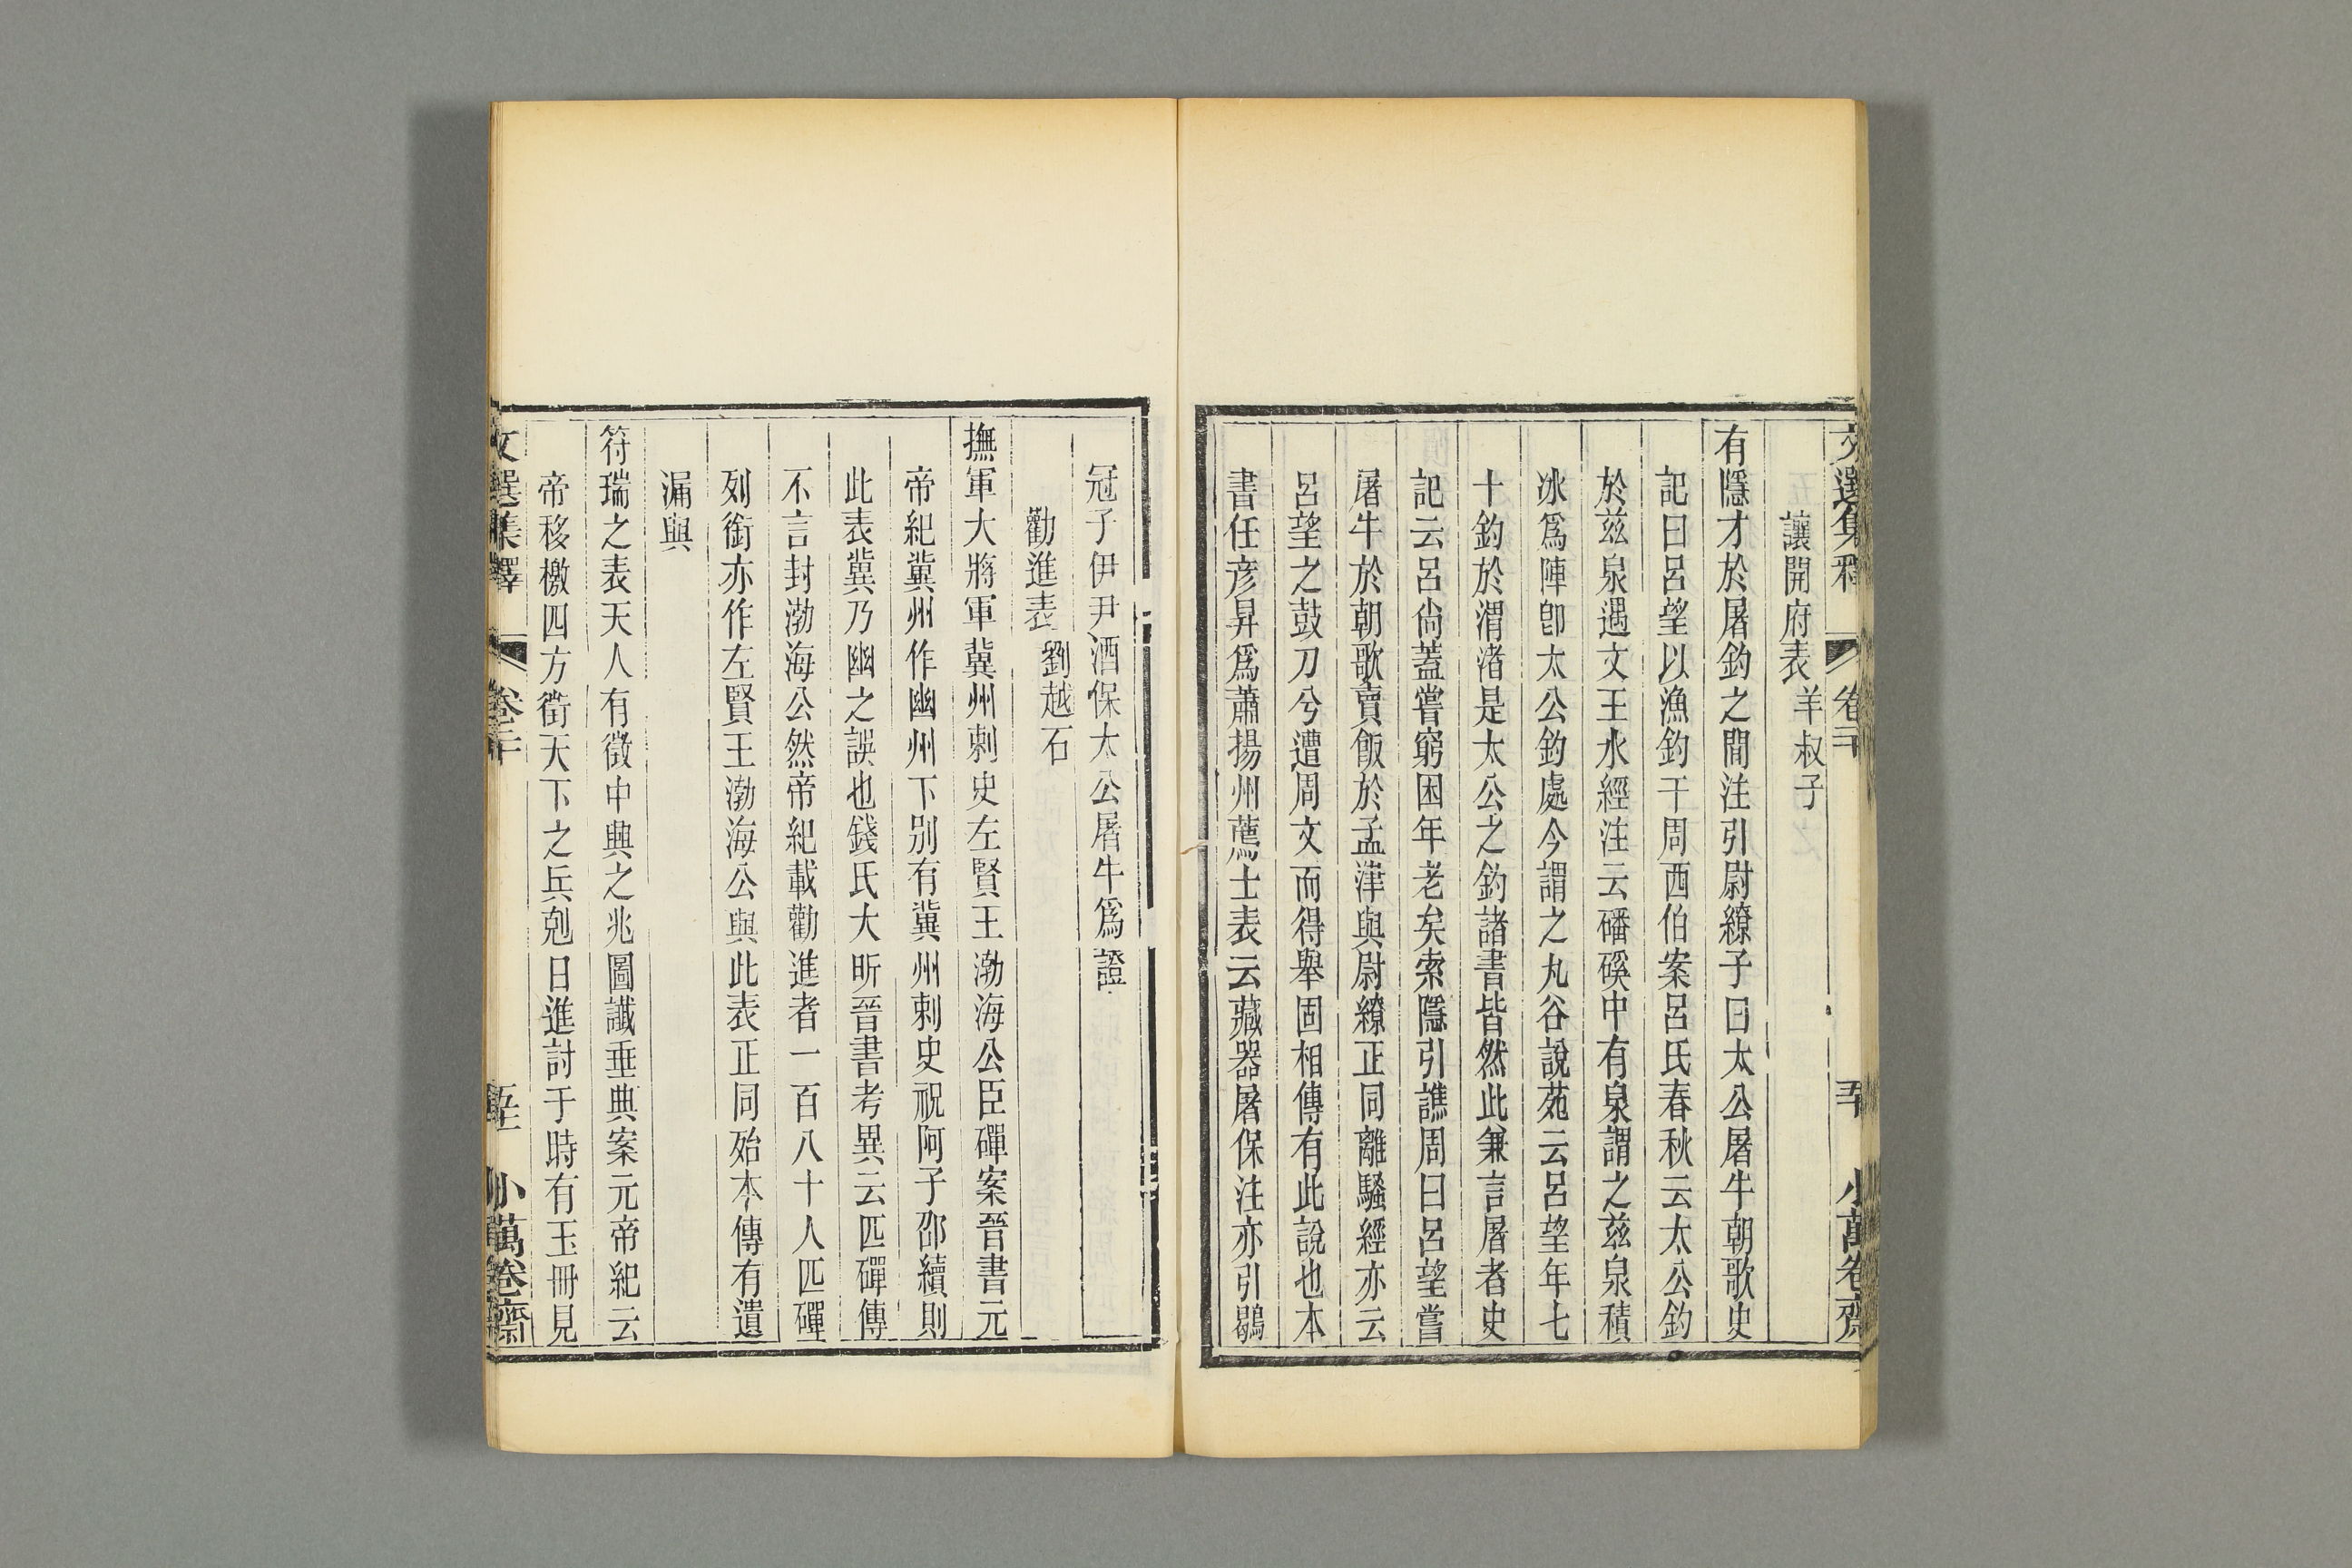 文選集釋 卷二十 五十 小萬卷齋
讓開府表 羊叔子
有隱才於屠釣之間注引尉繚子曰太公屠牛朝歌史
記曰呂望以漁釣干周西伯案呂氏春秋云太公釣
於茲泉遇文王水經注云磻磎中有泉謂之茲泉積
水爲陣卽太公釣處今謂之丸谷說苑云呂望年七
十釣於渭渚是太公之釣諸書皆然此兼言屠者史
記云呂尙蓋嘗窮困年老矣索隱引譙周曰呂望嘗
屠牛於朝歌賣飯於孟津與尉繚正同離騷經亦云
呂望之鼓刀兮遭周文而得舉固相傳有此說也本
書任彦昇爲蕭揚州薦士表云藏器屠保注亦引鶡
冠子伊尹酒保太公屠牛爲證
勸進表 劉越石
撫軍大將軍冀州刺史左賢王渤海公臣磾案晉書元
帝紀冀州作幽州下別有冀州刺史祝阿子邵續則
此表冀乃幽之誤也錢氏大昕晉書考異云匹磾傳
不言封渤海公然帝紀載勸進者一百八十人匹磾
列銜亦作左賢王渤海公與此表正同殆本傳有遺
漏與
符瑞之表天人有徵中興之兆圖讖垂典案元帝紀云
帝移檄四方徇天下之兵剋日進討于時有玉冊見
文選集釋 卷二十 小萬卷齋